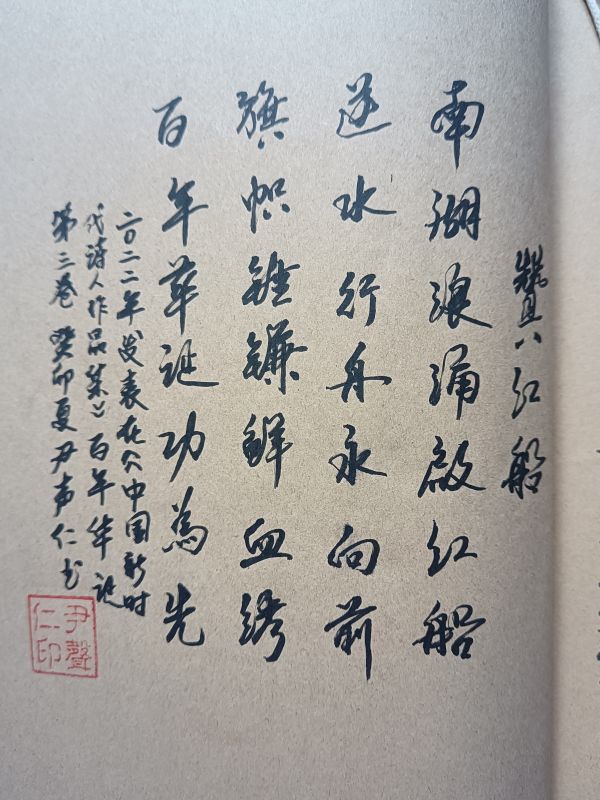 贊红船
南湖浪涌啟红船
逆水行舟永向前
旗帜錘鐮鲜血绣
百年華诞功為先
二〇二二年发表在《中国新时
代诗人作品集》百年华诞
第三卷 癸卯夏尹声仁书
尹聲
仁印